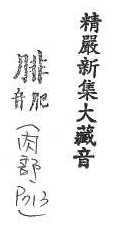 精嚴新集大藏音
腓肥
音
(肉部
P313)